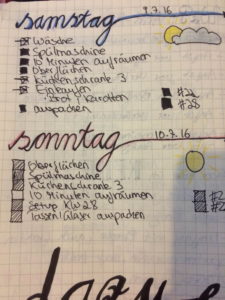 samstag 9.7.16
Wäsche
Spülmaschine
10 Minuten aufräumen
Oberflächen
Küchenschrank 3
Einkaufen
- Brot, Karotten
auspacken
#22
#28
sonntag 10.7.16
Oberflächen
Spülmaschine
Küchenschrank 3
10 Minuten aufräumen
Setup KW 28
Tassen/Gläser auspacken